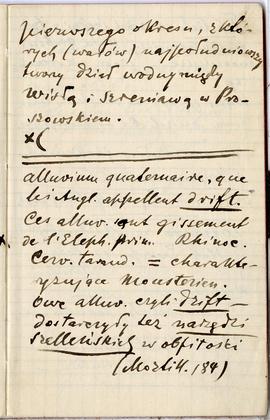 pierwszego okresu, z któ-
rych (wałów) najpołudniowszy
tworzy dział wodny między
Wisłą i Szreniawą w Pro-
szowskiem.
alluvium quaternaire, que
les Angl. appellent drift.
Ces alluv. ont gissement
de l'Eleph. prim. Rhinoc.
Cerv. tarand. = charakte-
ryzujące Mousterien.
Owe alluv. czyli drift -
dostarczyły też narzędzi
szelleńskich w obfitości
(Mortill. 184)